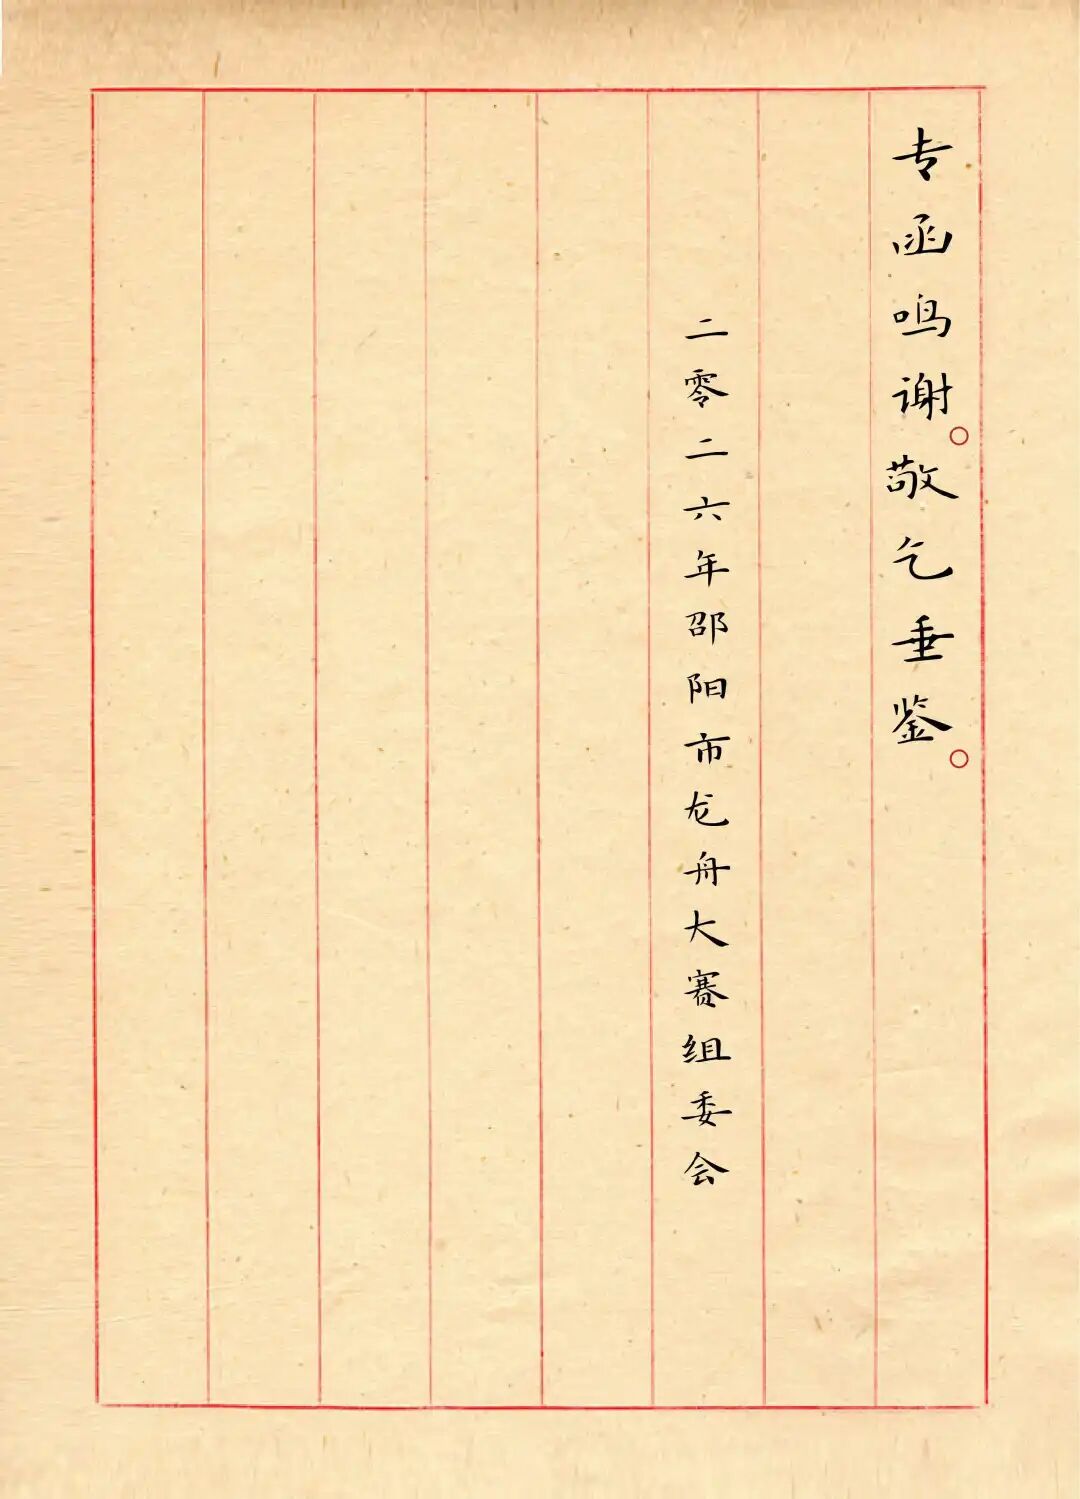 专函鸣谢。敬乞垂鉴。
二零二六年邵阳市龙舟大赛组委会